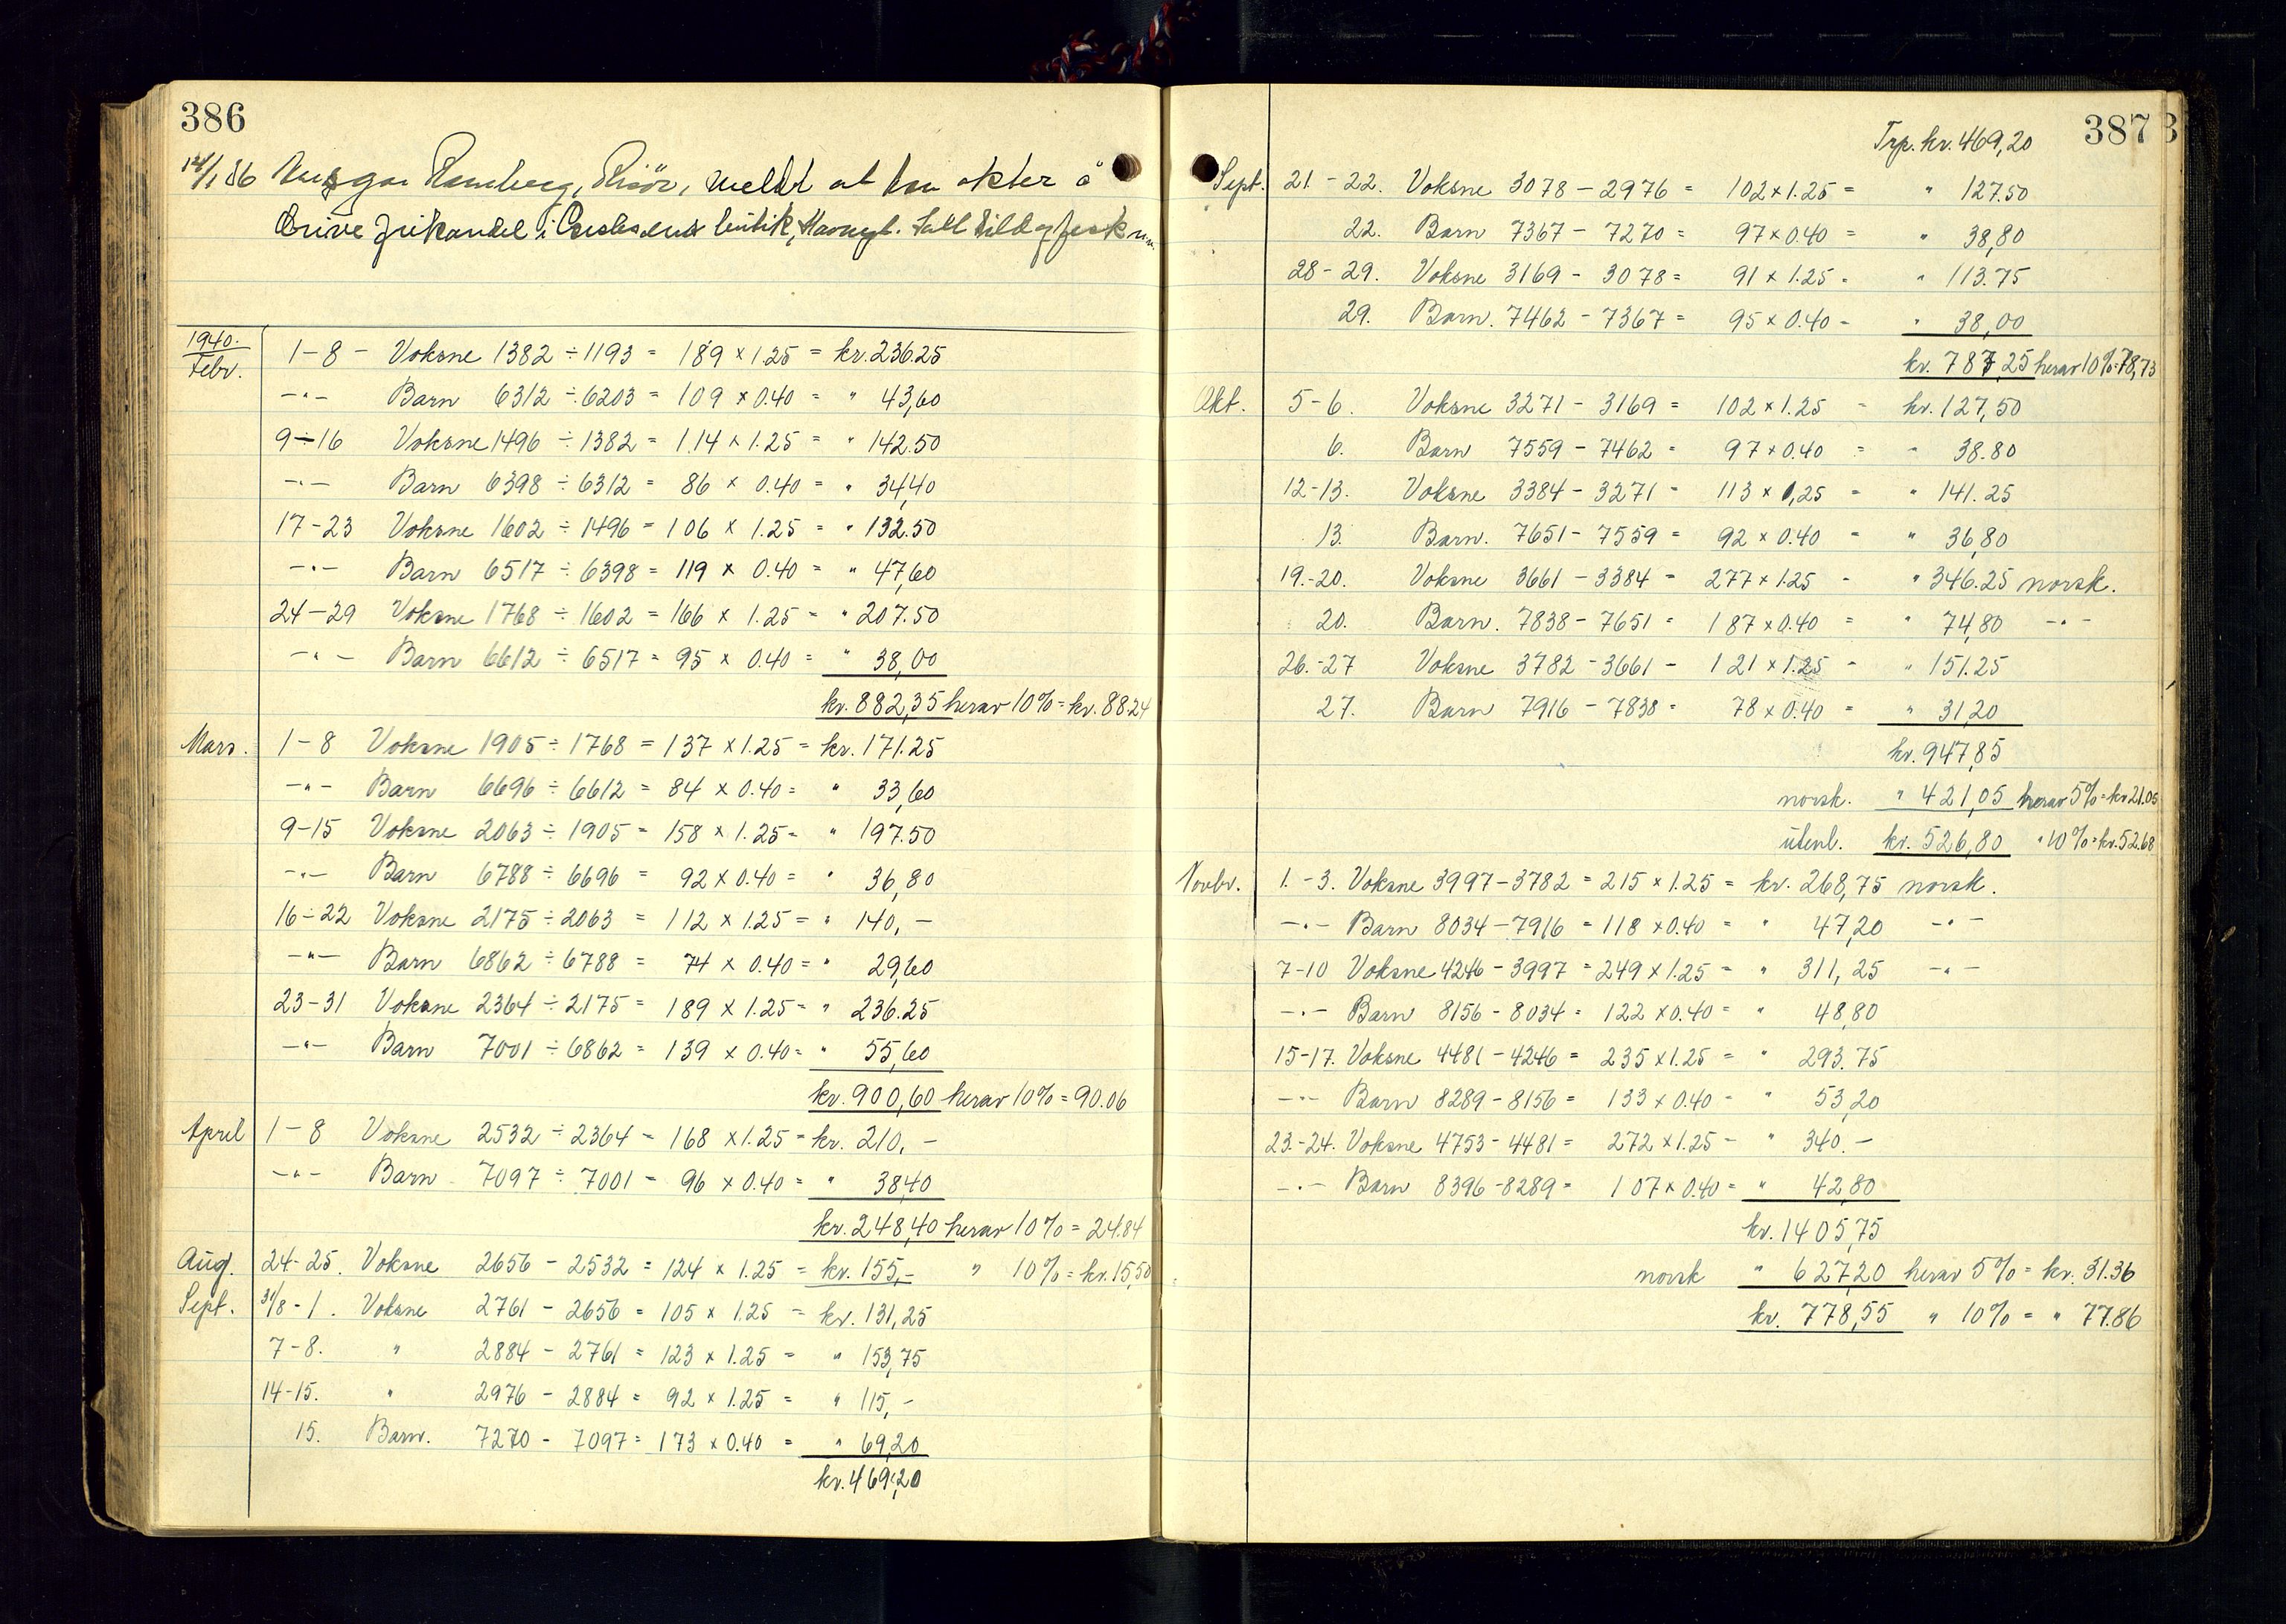 386
14/1 36 Ramberg, Risör, meldt at han akter å
drive frihandel i butik, Havnegt. Salt sild og fisk m.m.
1940.
Febr. 1-8 - Voksne 1382 ÷ 1193 = 189 × 1.25 = kr. 236.25
-"- Barn 6312 ÷ 6203 = 109 × 0.40 = " 43,60
9÷16 Voksne 1496 ÷ 1382 = 114 × 1.25 = " 142.50
-"- Barn 6398 ÷ 6312 = 86 × 0.40 = " 34,40
17-23 Voksne 1602 ÷ 1496 = 106 × 1.25 = " 132.50
-"- Barn 6517 ÷ 6398 = 119 × 0.40 = " 47,60
24-29 Voksne 1768 ÷ 1602 = 166 × 1.25 = " 207.50
-"- Barn 6612 ÷ 6517 = 95 × 0.40 = " 38,00
kr. 882,35 herav 10% = kr. 88.24
Mars. 1-8 Voksne 1905 ÷ 1768 = 137 × 1.25 = kr. 171.25
-"- Barn 6696 ÷ 6612 = 84 × 0.40 = " 33,60
9-15 Voksne 2063 ÷ 1905 = 158 × 1.25 = " 197.50
-"- Barn 6788 ÷ 6696 = 92 × 0.40 = " 36,80
16÷22 Voksne 2175 ÷ 2063 = 112 × 1.25 = " 140,-
-"- Barn 6862 ÷ 6788 = 74 × 0.40 = " 29,60
23-31 Voksne 2364 ÷ 2175 = 189 × 1.25 = " 236.25
-"- Barn 7001 ÷ 6862 = 139 × 0.40 = " 55,60
kr. 900,60 herav 10% = 90.06
April 1-8 Voksne 2532 ÷ 2364 = 168 × 1.25 = kr. 210,-
-"- Barn 7097 ÷ 7001 = 96 × 0.40 = " 38,40
kr. 248,40 herav 10% = 24.84
Aug. 24-25. Voksne 2656 - 2532 = 124 × 1.25 = kr. 155,- " 10% = kr. 15,50
Sept. 31/8-1. Voksne 2761 - 2656 = 105 × 1.25 = kr. 131,25
7-8. " 2884 - 2761 = 123 × 1.25 = " 153,75
14-15. " 2976 - 2884 = 92 × 1.25 = " 115,-
15. Barn. 7270 - 7097 = 173 × 0.40 = " 69,20
kr. 469,20
387
Trp. kr. 469,20
Sept. 21.-22. Voksne 3078 - 2976 = 102 × 1.25 = " 127.50
22. Barn 7367 - 7270 = 97 × 0.40 = " 38,80
28-29. Voksne 3169 - 3078 = 91 × 1.25 = " 113.75
29. Barn. 7462 - 7367 = 95 × 0.40 = " 38,00
kr. 787,25 herav 10% = 78,73
Okt. 5-6. Voksne 3271 - 3169 = 102 × 1.25 = kr. 127,50
6. Barn 7559 - 7462 = 97 × 0.40 = " 38.80
12-13. Voksne 3384 - 3271 = 113 × 1,25 = " 141.25
13. Barn. 7651 - 7559 = 92 × 0.40 = " 36,80
19.-20. Voksne 3661 - 3384 = 277 × 1.25 = " 346.25 norsk.
20. Barn. 7838 - 7651 = 187 × 0.40 = " 74,80 -"-
26.-27 Voksne 3782 - 3661 = 121 × 1.25 = " 151.25
27. Barn 7916 - 7838 = 78 × 0.40 = " 31,20
kr. 947,85
norsk. " 421,05 herav 5% = kr 21.05
utenl. kr. 526,80 " 10% = kr. 52.68
Novbr. 1.-3. Voksne 3997 - 3782 = 215 × 1.25 = kr. 268,75 norsk.
-"- Barn 8034 - 7916 = 118 × 0.40 = " 47,20 -"-
7-10 Voksne 4246 - 3997 = 249 × 1.25 = " 311,25 -"-
-"- Barn 8156 - 8034 = 122 × 0.40 = " 48,80
15-17. Voksne 4481 - 4246 = 235 × 1.25 = " 293.75
-"- Barn 8289 - 8156 = 133 × 0.40 = " 53,20
23.-24. Voksne 4753 - 4481 = 272 × 1.25 = " 340.-
-"- Barn 8396 - 8289 = 107 × 0.40 = " 42,80
kr. 1405,75
norsk " 627,20 herav 5% = kr. 31.36
kr. 778,55 " 10% = " 77.86